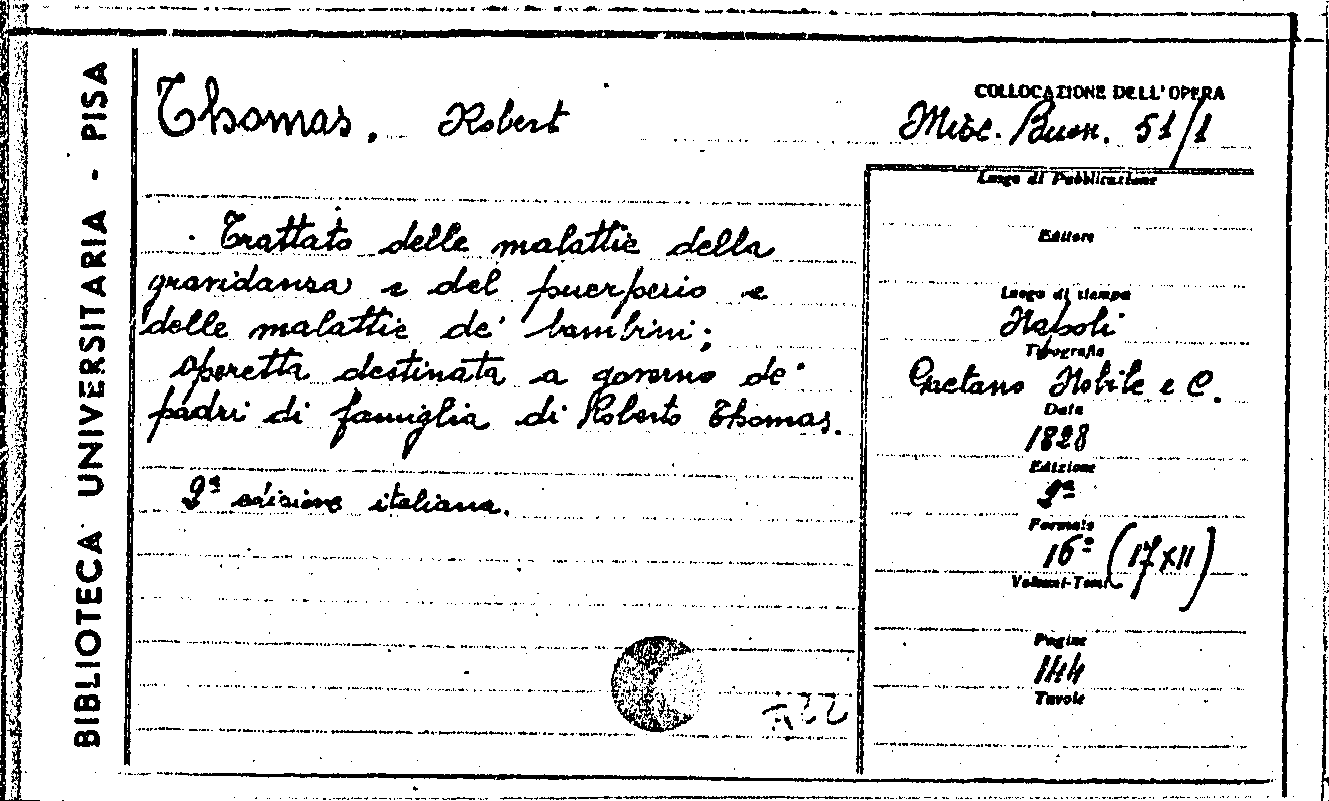 BIBLIOTECA UNIVERSITARIA - PISA
Thomas, Robert
COLLOCAZIONE DELL'OPERA
Misc. Buon. 51/1
Trattato delle malattie della
gravidanza e del puerperio e
delle malattie de' bambini;
operetta destinata a governo de'
padri di famiglia di Roberto Thomas.
2ª edizione italiana.
Luogo di Pubblicazione
Editore
Luogo di stampa
Napoli
Tipografia
Gaetano Nobile e C.
Data
1828
Edizione
2ª
Formato
16º (17x11)
Volumi-Tomi
Pagine
144
Tavole